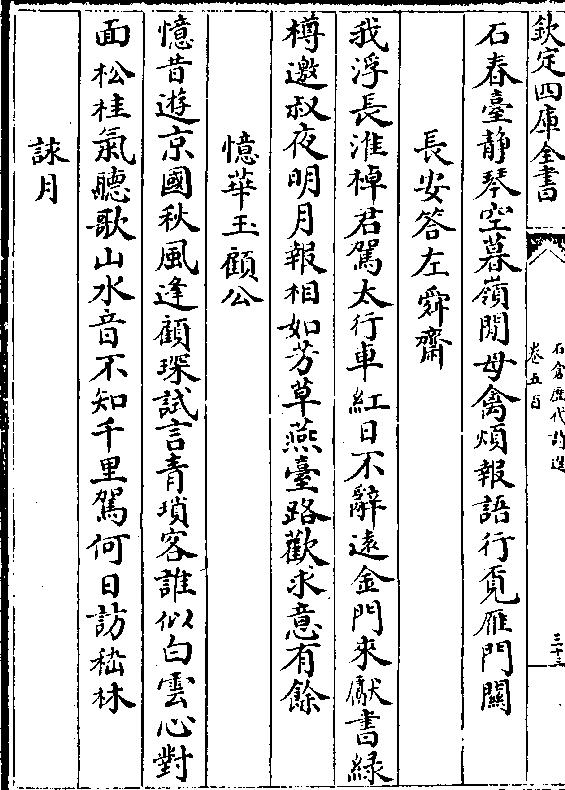 欽定四庫全書
石倉歷代詩選
卷五百
三十三
石春臺静琴空暮嶺閒毋禽煩報語行覓雁門關
長安答左舜齋
我浮長淮棹君駕太行車紅日不辭遠金門來獻書緑
樽邀叔夜明月報相如芳草燕臺路歡求意有餘
憶華玉顧公
憶昔遊京國秋風逢顧琛試言青瑣客誰似白雲心對
面松桂氣聽歌山水音不知千里駕何日訪嵇林
詠月